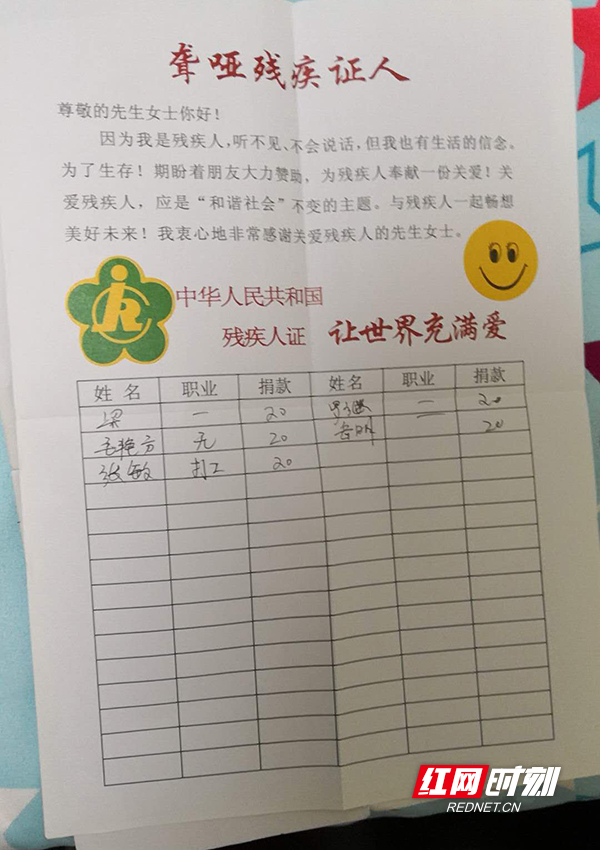 聋哑残疾证人
尊敬的先生女士你好！
因为我是残疾人，听不见、不会说话，但我也有生活的信念。
为了生存！期盼着朋友大力赞助，为残疾人奉献一份关爱！关
爱残疾人，应是“和谐社会”不变的主题。与残疾人一起畅想
美好未来！我衷心地非常感谢关爱残疾人的先生女士。
中华人民共和国
残疾人证 让世界充满爱
姓名 职业 捐款 姓名 职业 捐款
梁 一 20 一 20
毛艳方 无 20 20
张敏 打工 20
红网时刻
REDNET.CN